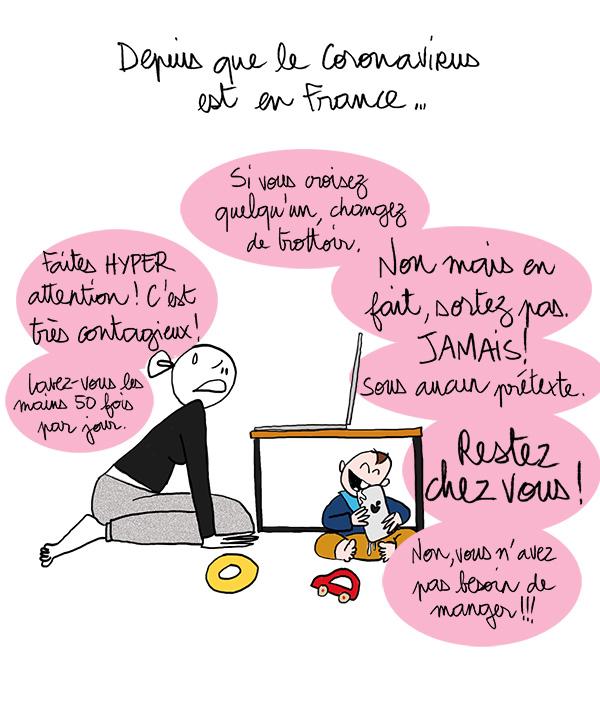 Depuis que le Coronavirus
est en France...
Si vous croisez
quelqu'un, changez
de trottoir.
Faites HYPER
attention! C'est
très contagieux!
Lavez-vous les
mains 50 fois
par jour.
Non mais en
fait, sortez pas.
JAMAIS!
Sous aucun prétexte.
Restez
chez vous!
Non, vous n'avez
pas besoin de
manger!!!